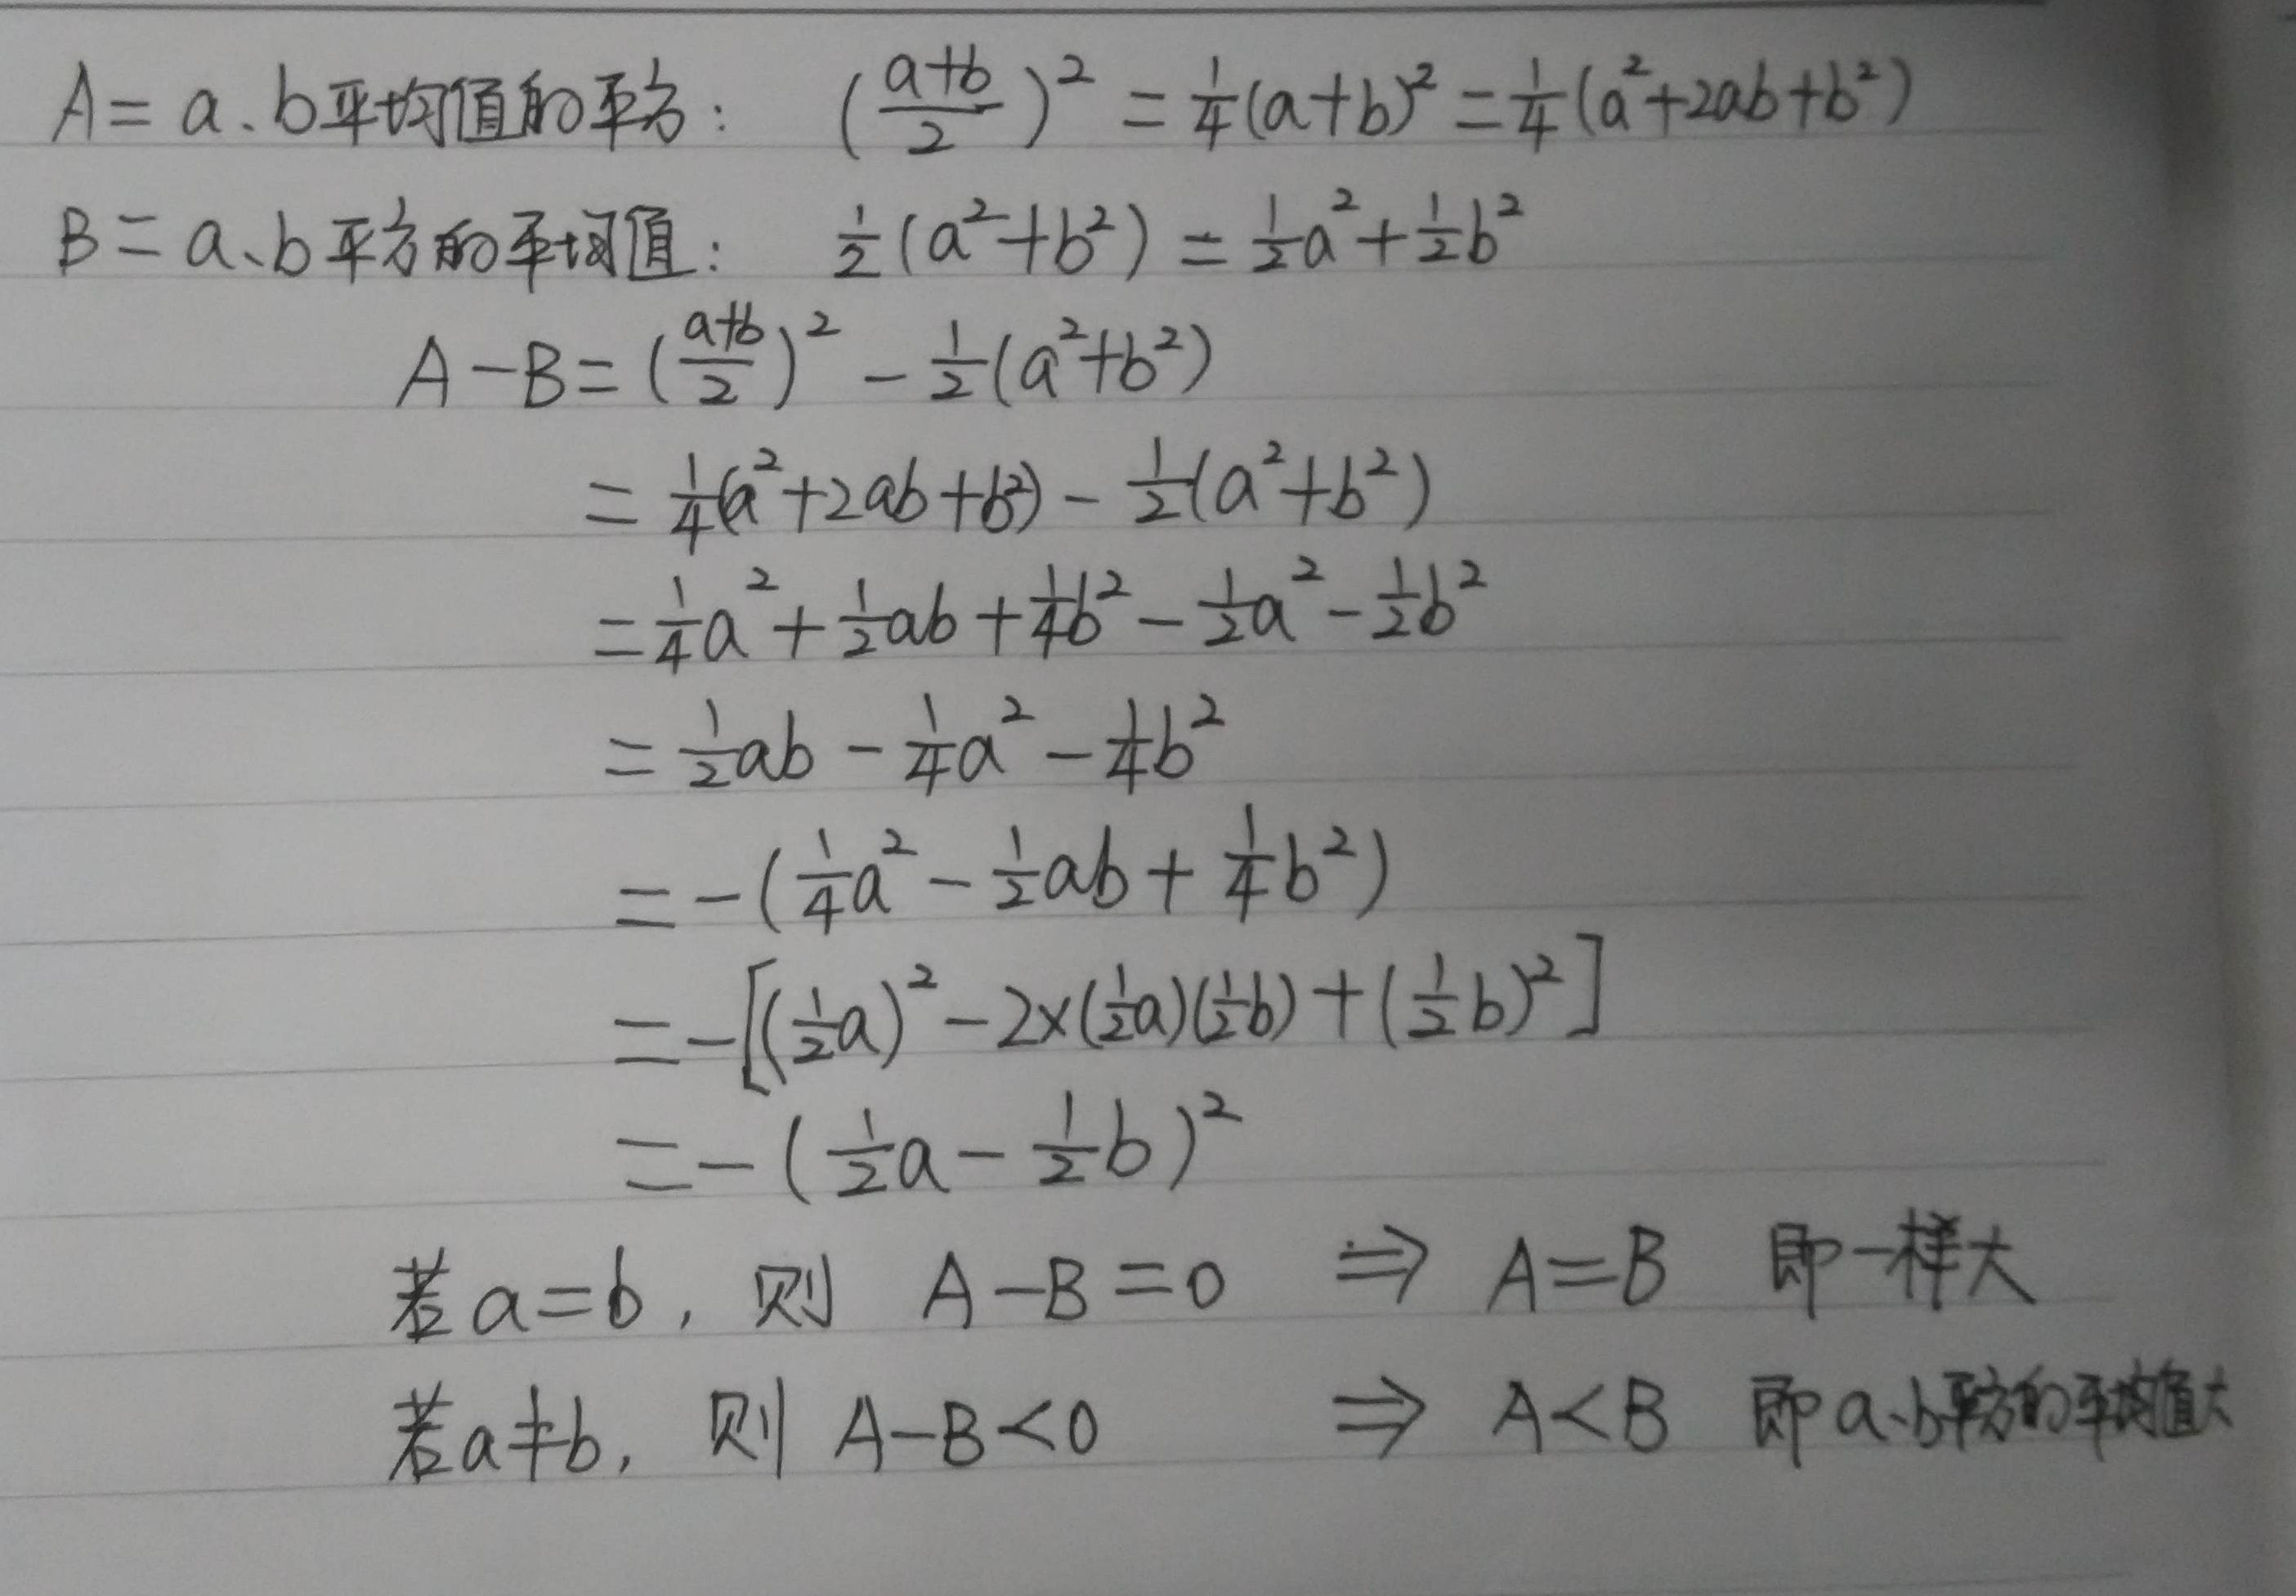 A = a、b平均值的平方： (a+b/2)² = 1/4(a+b)² = 1/4(a²+2ab+b²)
B = a、b平方的平均值： 1/2(a²+b²) = 1/2a²+1/2b²
A-B = (a+b/2)² - 1/2(a²+b²)
= 1/4(a²+2ab+b²) - 1/2(a²+b²)
= 1/4a² + 1/2ab + 1/4b² - 1/2a² - 1/2b²
= 1/2ab - 1/4a² - 1/4b²
= -(1/4a² - 1/2ab + 1/4b²)
= -[(1/2a)² - 2×(1/2a)(1/2b) + (1/2b)²]
= -(1/2a - 1/2b)²
若a=b，则 A-B=0 ⇒ A=B 即一样大
若a≠b，则 A-B<0 ⇒ A<B 即a、b平方的平均值大